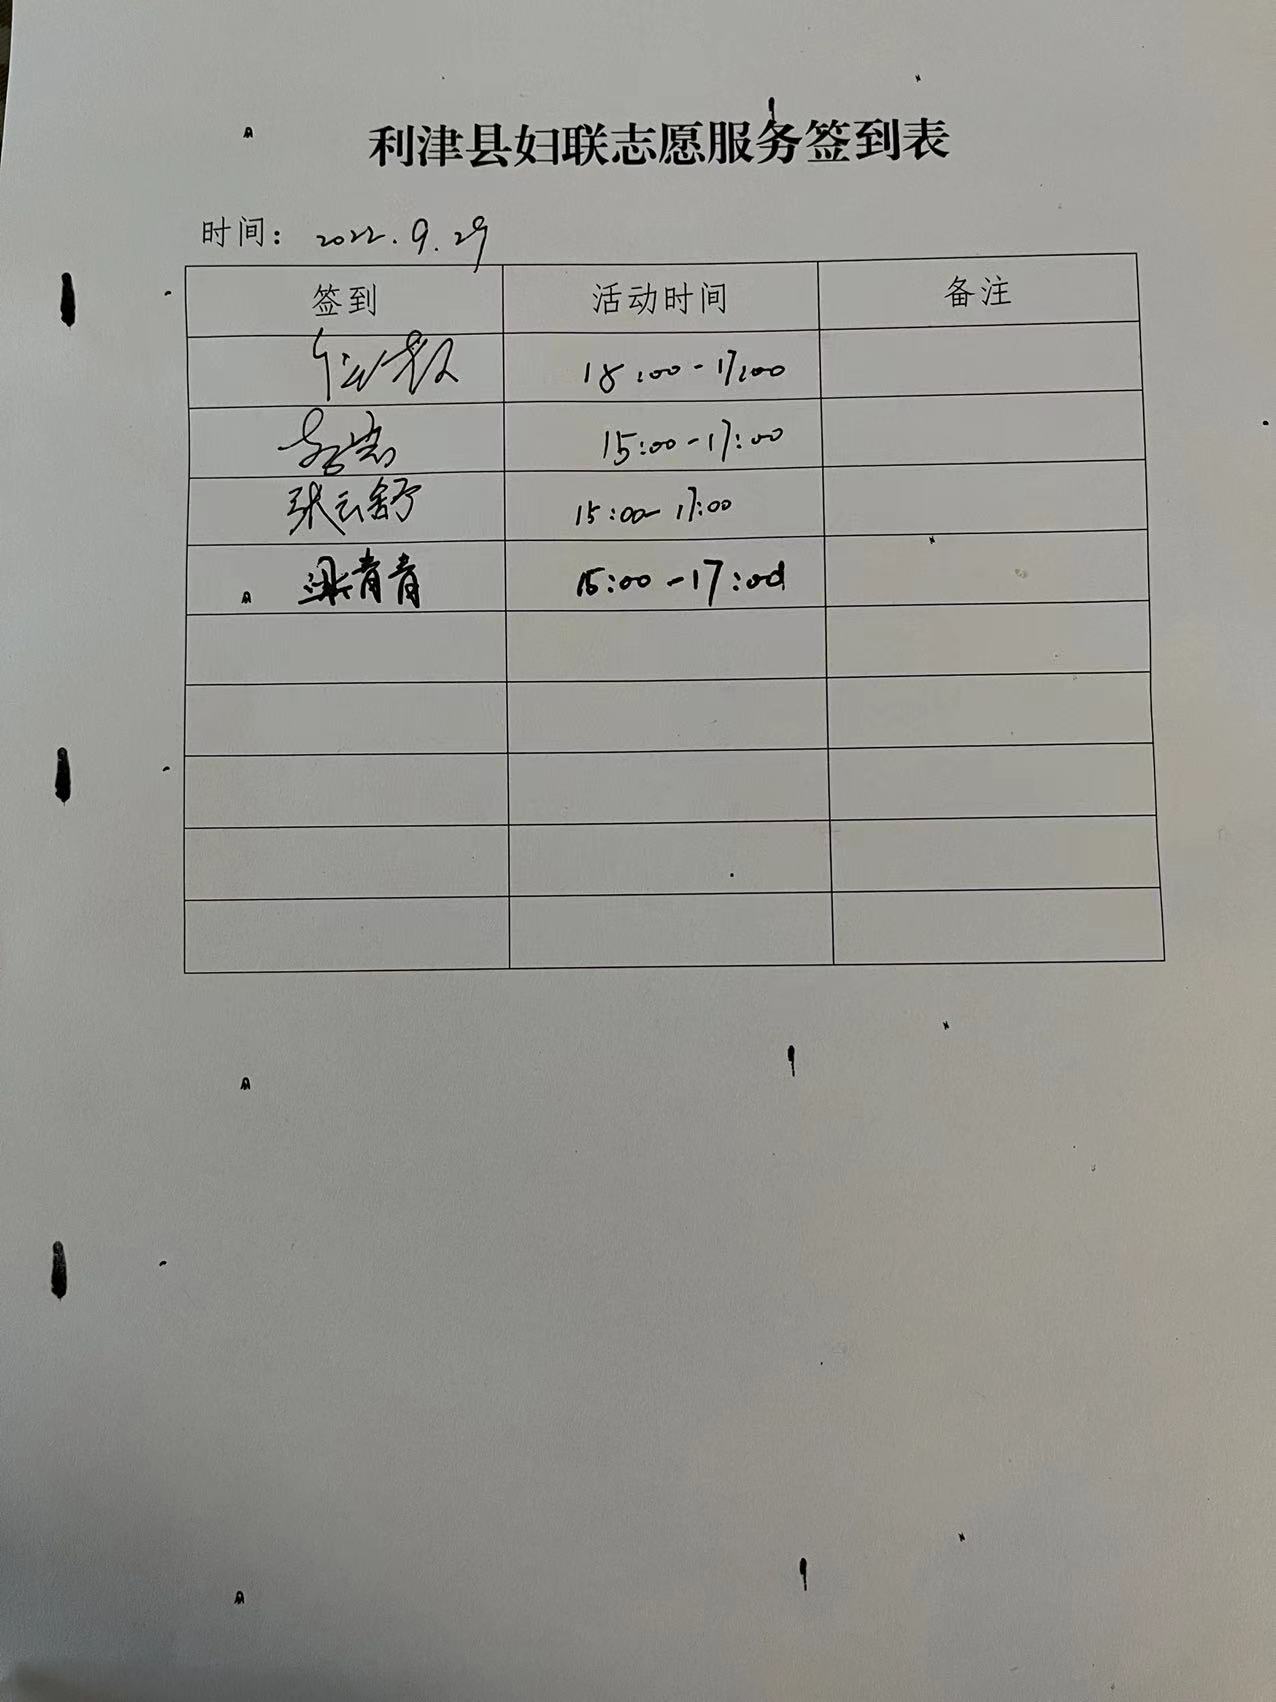 利津县妇联志愿服务签到表
时间： 2022.9.29
签到 活动时间 备注
18:00-17:00
15:00-17:00
张云舒 15:00-17:00
梁青青 15:00-17:00